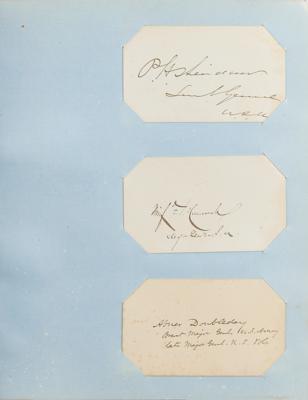 P. H. Sheridan
Lieut General
U.S.A.
Winf'd S. Hancock
Maj. Genl U.S.A.
Abner Doubleday
Brevet Major Genl. U.S. Army
late Major Genl. U.S. Vols